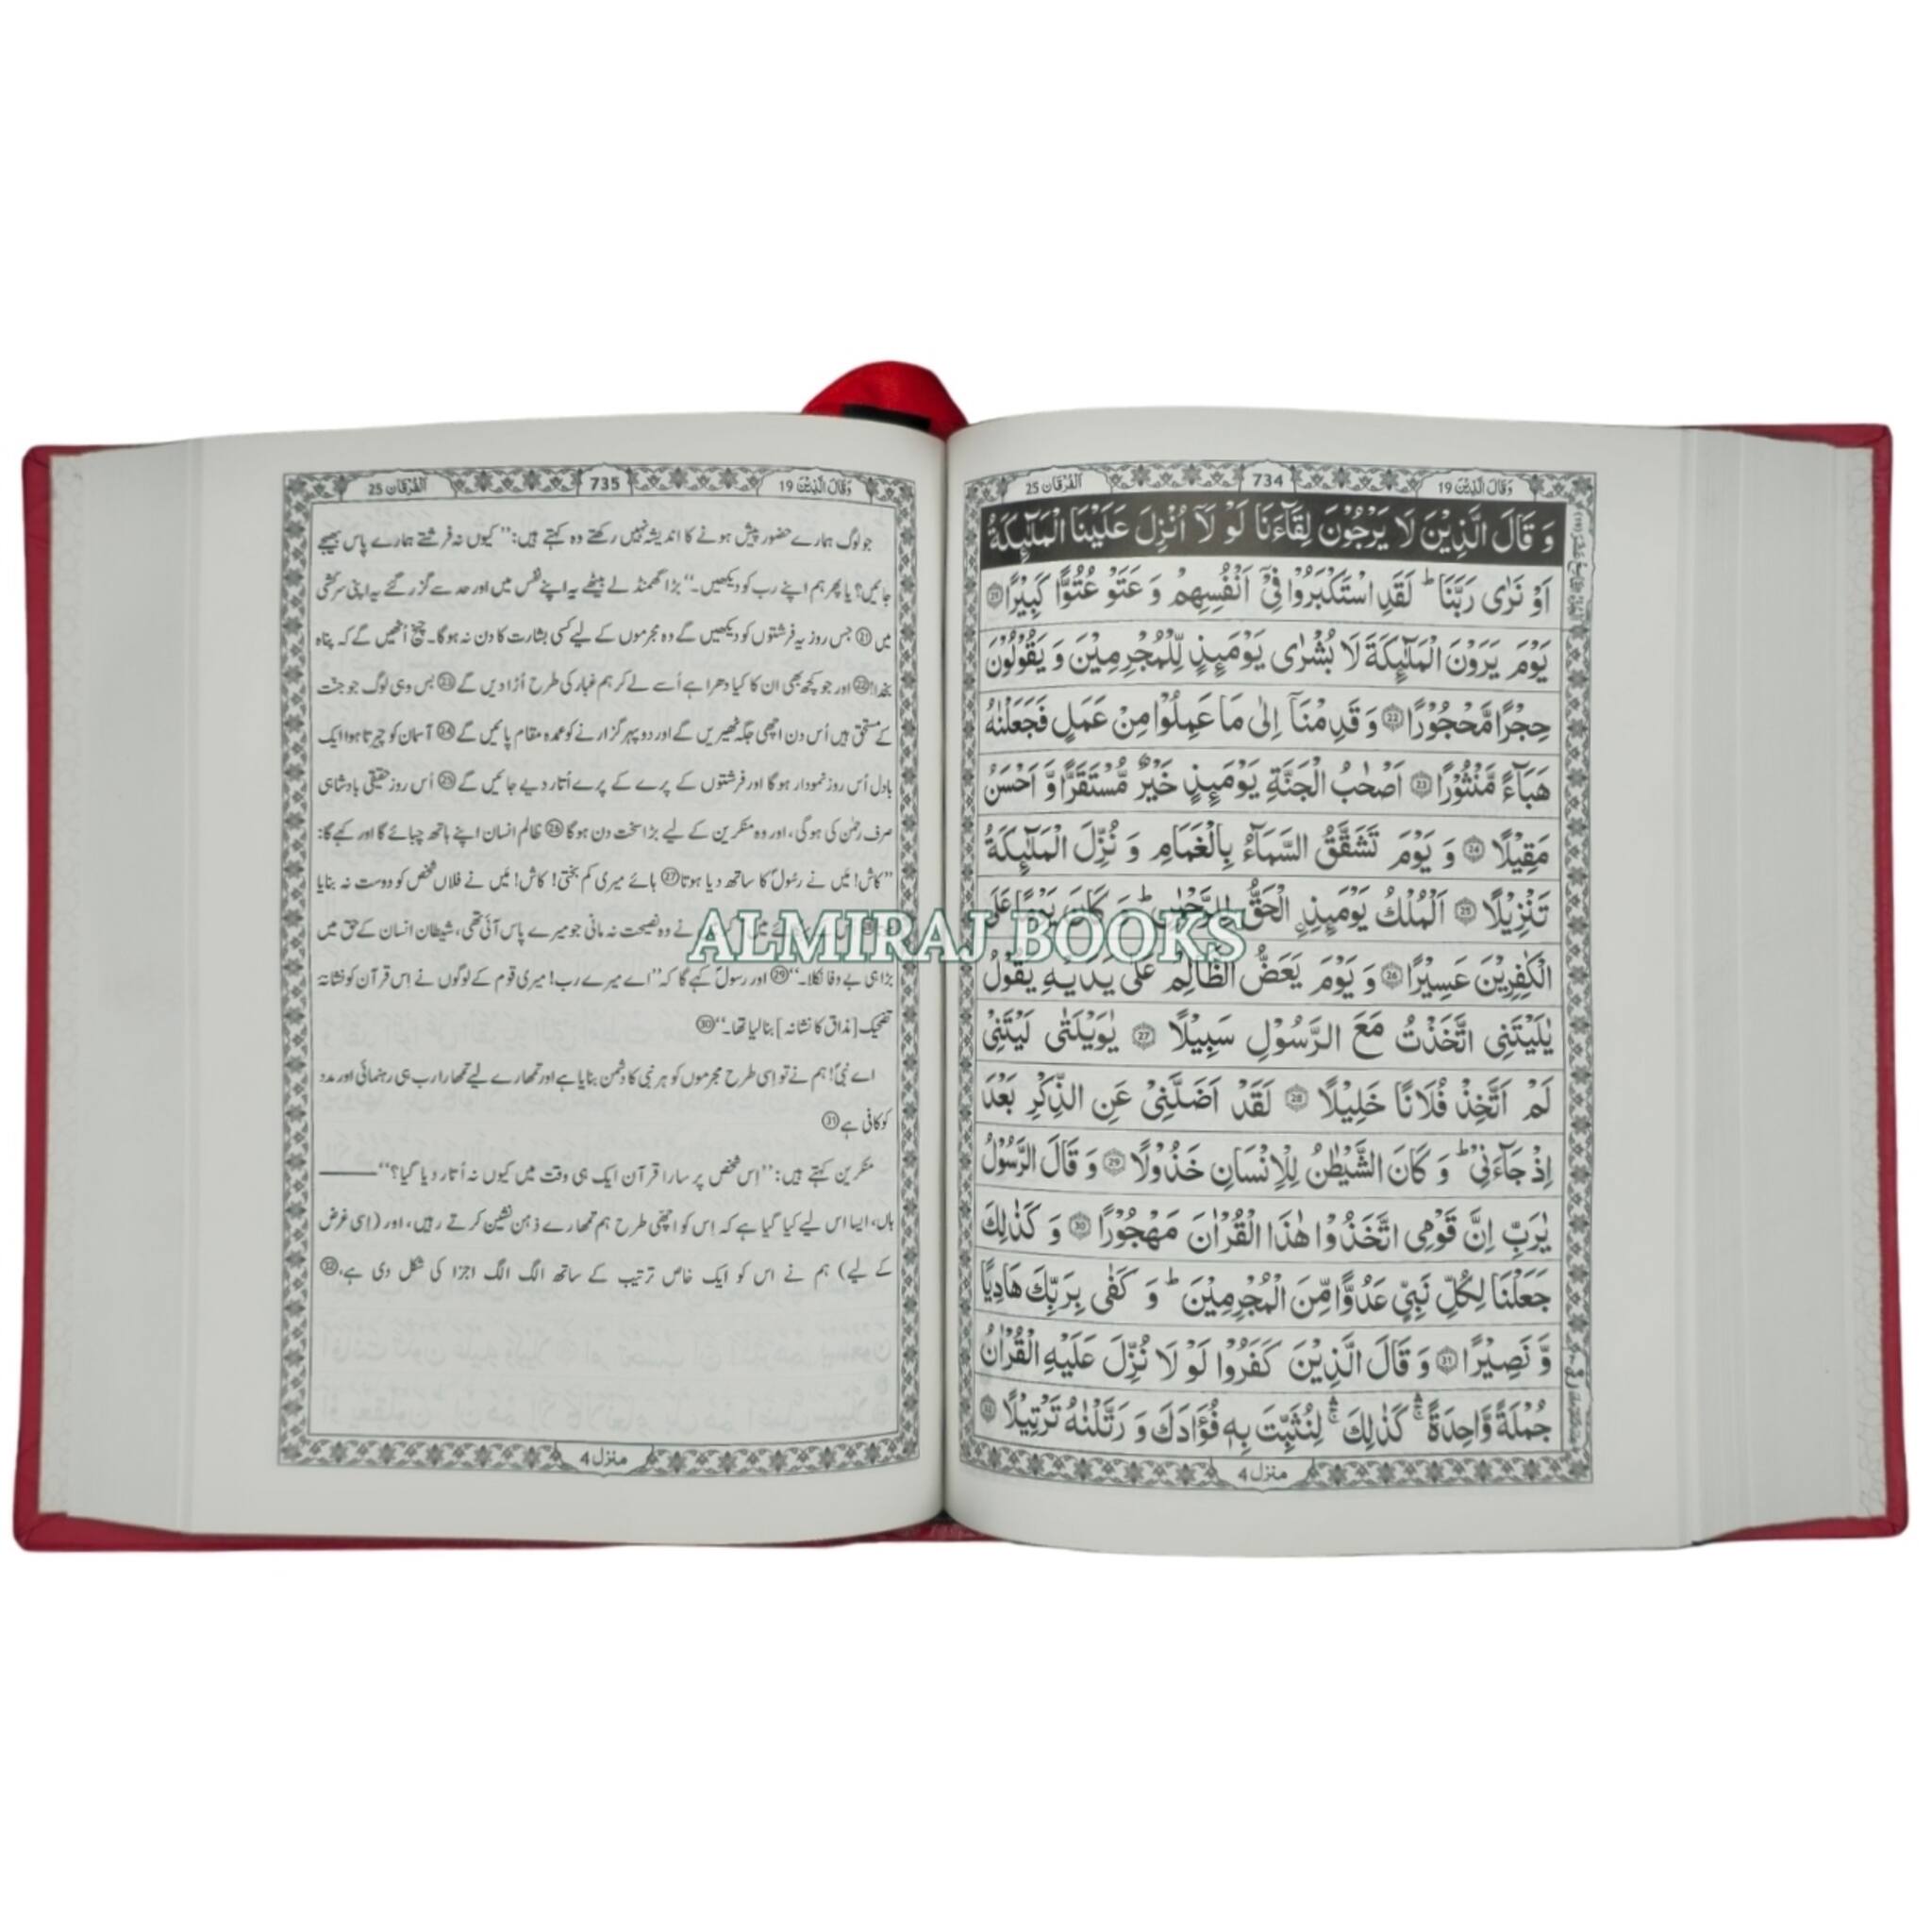 وَقَالَ الَّذِيْنَ 19
734
اَلْفُرْقَان 25
وَ قَالَ الَّذِيْنَ لَا يَرْجُوْنَ لِقَآءَنَا لَوْ لَاۤ اُنْزِلَ عَلَيْنَا الْمَلٰٓىِٕكَةُ
اَوْ نَرٰى رَبَّنَا ؕ لَقَدِ اسْتَكْبَرُوْا فِيْۤ اَنْفُسِهِمْ وَ عَتَوْ عُتُوًّا كَبِيْرًا ۝21
يَوْمَ يَرَوْنَ الْمَلٰٓىِٕكَةَ لَا بُشْرٰى يَوْمَىِٕذٍ لِّلْمُجْرِمِيْنَ وَ يَقُوْلُوْنَ
حِجْرًا مَّحْجُوْرًا ۝22 وَ قَدِمْنَاۤ اِلٰى مَا عَمِلُوْا مِنْ عَمَلٍ فَجَعَلْنٰهُ
هَبَآءً مَّنْثُوْرًا ۝23 اَصْحٰبُ الْجَنَّةِ يَوْمَىِٕذٍ خَيْرٌ مُّسْتَقَرًّا وَّ اَحْسَنُ
مَقِيْلًا ۝24 وَ يَوْمَ تَشَقَّقُ السَّمَآءُ بِالْغَمَامِ وَ نُزِّلَ الْمَلٰٓىِٕكَةُ
تَنْزِيْلًا ۝25 اَلْمُلْكُ يَوْمَىِٕذِ الْحَقُّ لِلرَّحْمٰنِ ؕ وَ كَانَ يَوْمًا عَلَى
الْكٰفِرِيْنَ عَسِيْرًا ۝26 وَ يَوْمَ يَعَضُّ الظَّالِمُ عَلٰى يَدَيْهِ يَقُوْلُ
يٰلَيْتَنِى اتَّخَذْتُ مَعَ الرَّسُوْلِ سَبِيْلًا ۝27 يٰوَيْلَتٰى لَيْتَنِيْ
لَمْ اَتَّخِذْ فُلَانًا خَلِيْلًا ۝28 لَقَدْ اَضَلَّنِيْ عَنِ الذِّكْرِ بَعْدَ
اِذْ جَآءَنِيْ ؕ وَ كَانَ الشَّيْطٰنُ لِلْاِنْسَانِ خَذُوْلًا ۝29 وَ قَالَ الرَّسُوْلُ
يٰرَبِّ اِنَّ قَوْمِى اتَّخَذُوْا هٰذَا الْقُرْاٰنَ مَهْجُوْرًا ۝30 وَ كَذٰلِكَ
جَعَلْنَا لِكُلِّ نَبِيٍّ عَدُوًّا مِّنَ الْمُجْرِمِيْنَ ؕ وَ كَفٰى بِرَبِّكَ هَادِيًا
وَّ نَصِيْرًا ۝31 وَ قَالَ الَّذِيْنَ كَفَرُوْا لَوْ لَا نُزِّلَ عَلَيْهِ الْقُرْاٰنُ
جُمْلَةً وَّاحِدَةً ۛۚ كَذٰلِكَ ۛۚ لِنُثَبِّتَ بِهٖ فُؤَادَكَ وَ رَتَّلْنٰهُ تَرْتِيْلًا ۝32
منزل 4
وَقَالَ الَّذِيْنَ 19
735
اَلْفُرْقَان 25
جو لوگ ہمارے حضور پیش ہونے کا اندیشہ نہیں رکھتے وہ کہتے ہیں: ”کیوں نہ فرشتے ہمارے پاس بھیجے
جائیں؟ یا پھر ہم اپنے رب کو دیکھیں۔“ بڑا گھمنڈ لے بیٹھے یہ اپنے نفس میں اور حد سے گزر گئے یہ اپنی سرکشی
میں ۝21 جس روز یہ فرشتوں کو دیکھیں گے وہ مجرموں کے لیے کسی بشارت کا دن نہ ہوگا۔ چیخ اُٹھیں گے کہ پناہ
بخدا! ۝22 اور جو کچھ بھی ان کا کیا دھرا ہے اُسے لے کر ہم غبار کی طرح اُڑا دیں گے ۝23 بس وہی لوگ جو جنّت
کے مستحق ہیں اُس دن اچھی جگہ ٹھیریں گے اور دوپہر گزارنے کو عمدہ مقام پائیں گے ۝24 آسمان کو چیرتا ہوا ایک
بادل اُس روز نمودار ہوگا اور فرشتوں کے پرے کے پرے اُتار دیے جائیں گے ۝25 اُس روز حقیقی بادشاہی
صرف رحمٰن کی ہوگی، اور وہ منکرین کے لیے بڑا سخت دن ہوگا ۝26 ظالم انسان اپنے ہاتھ چبائے گا اور کہے گا:
”کاش! مَیں نے رسُولؐ کا ساتھ دیا ہوتا ۝27 ہائے میری کم بختی! کاش! مَیں نے فلاں شخص کو دوست نہ بنایا
نے وہ نصیحت نہ مانی جو میرے پاس آئی تھی، شیطان انسان کے حق میں
بڑا ہی بے وفا نکلا۔“ ۝29 اور رسولؐ کہے گا کہ ”اے میرے رب! میری قوم کے لوگوں نے اِس قرآن کو نشانۂ
تضحیک [مذاق کا نشانہ] بنا لیا تھا۔“ ۝30
اے نبیؐ! ہم نے تو اِسی طرح مجرموں کو ہر نبی کا دشمن بنایا ہے اور تمھارے لیے تمھارا رب ہی رہنمائی اور مدد
کو کافی ہے ۝31
منکرین کہتے ہیں: ”اِس شخص پر سارا قرآن ایک ہی وقت میں کیوں نہ اُتار دیا گیا؟“ ——
ہاں، ایسا اس لیے کیا گیا ہے کہ اِس کو اچھی طرح ہم تمھارے ذہن نشین کرتے رہیں، اور (اِسی غرض
کے لیے) ہم نے اس کو ایک خاص ترتیب کے ساتھ الگ الگ اجزا کی شکل دی ہے۔ ۝32
منزل 4
ALMIRAJ BOOKS